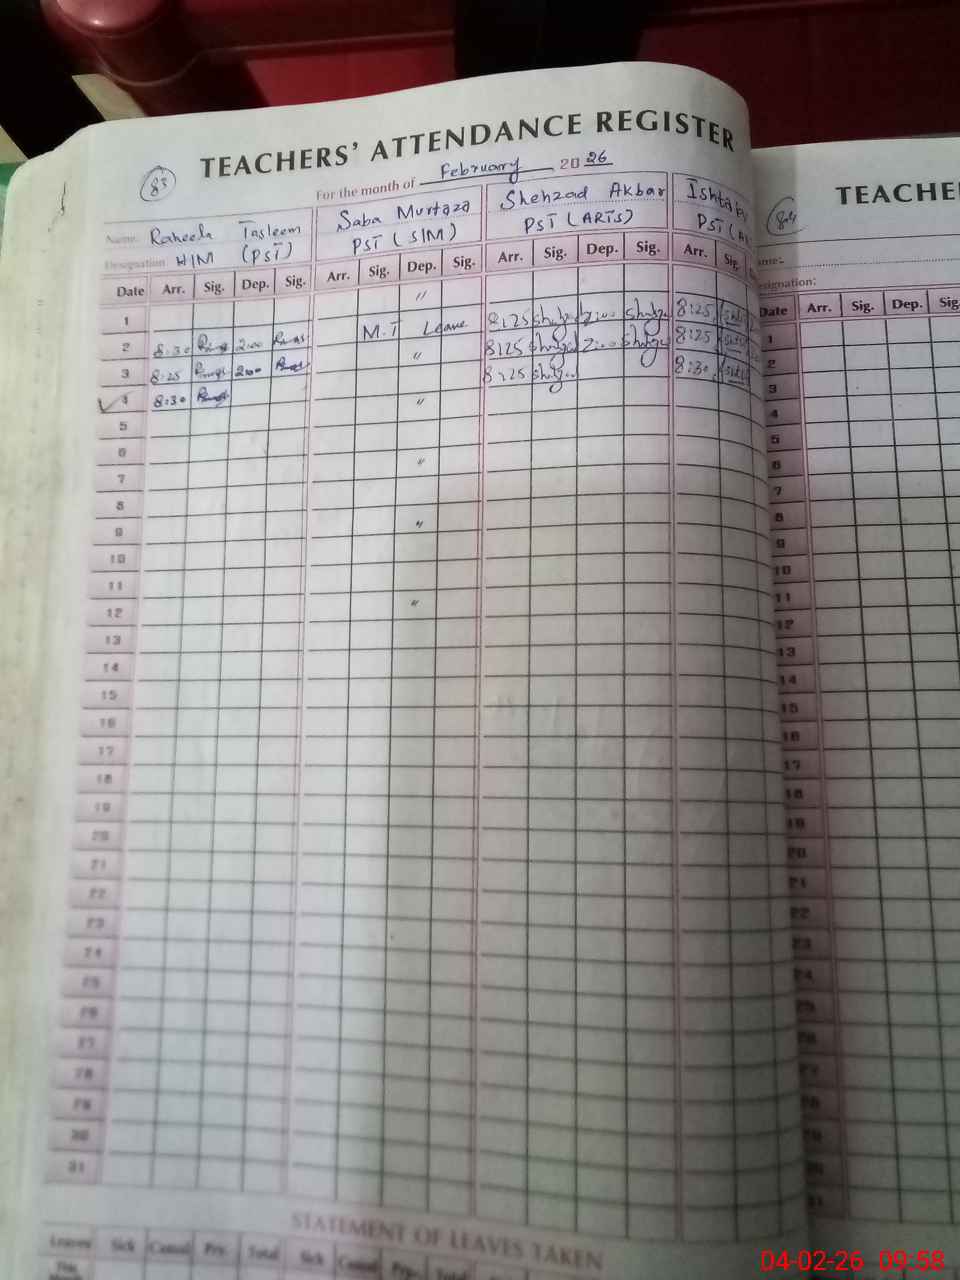 TEACHERS' ATTENDANCE REGISTER
83
For the month of February 2026
Name: Raheela Tasleem
Saba Murtaza
Shehzad Akbar
Designation H/M (PST)
PST (SIM)
PST (ARTS)
PST
Date Arr. Sig. Dep. Sig. Arr. Sig. Dep. Sig. Arr. Sig. Dep. Sig. Arr. Sig.
1 "
2 8:30 2:00 M.T Leave 8:25 2:00 8:25
3 8:25 2:00 " 8:25 2:00 8:25
4 8:30 " 8:25 8:30
5
6
7 "
8
9 "
10
11
12 "
13
14
15
16
17
18
19
20
21
22
23
24
25
26
27
28
29
30
31
STATEMENT OF LEAVES TAKEN
Leaves Sick Casual Prv. Total Sick Casual Prv. Total
This
TEACHE
84
ame:-
esignation:
Date Arr. Sig. Dep. Sig.
1
2
3
4
5
6
7
8
9
10
11
12
13
14
15
16
17
18
19
20
21
22
23
24
25
04-02-26 09:58